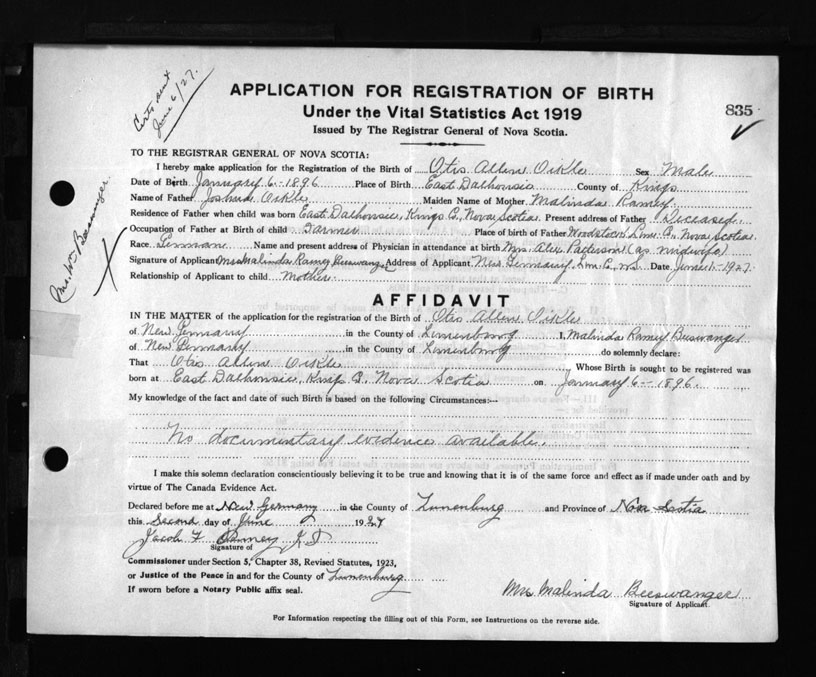 Certs sent
June 6/27.
APPLICATION FOR REGISTRATION OF BIRTH
Under the Vital Statistics Act 1919
835
Issued by The Registrar General of Nova Scotia.
TO THE REGISTRAR GENERAL OF NOVA SCOTIA:
I hereby make application for the Registration of the Birth of Otis Allen Oikle Sex Male
Date of Birth January 6-1896 Place of Birth East Dalhousie County of Kings
Name of Father Joshua Oikle Maiden Name of Mother Malinda Ramey
Residence of Father when child was born East Dalhousie, Kings Co, Nova Scotia Present address of Father Deceased
Occupation of Father at Birth of child Farmer Place of birth of Father Woodstock Lun. Co, Nova Scotia
Race German Name and present address of Physician in attendance at birth Mrs Alex Patterson (as midwife)
Signature of Applicant Mrs Malinda Ramey Beeswanger Address of Applicant New Germany Lun. Co, N.S Date June 1-1927
Relationship of Applicant to child Mother
Mrs. Wm Beeswanger
AFFIDAVIT
IN THE MATTER of the application for the registration of the Birth of Otis Allen Oikle
of New Germany in the County of Lunenburg I, Malinda Ramey Beeswanger
of New Germany in the County of Lunenburg do solemnly declare:
That Otis Allen Oikle Whose Birth is sought to be registered was
born at East Dalhousie, Kings Co, Nova Scotia on January 6-1896.
My knowledge of the fact and date of such Birth is based on the following Circumstances:—
No documentary evidence available.
I make this solemn declaration conscientiously believing it to be true and knowing that it is of the same force and effect as if made under oath and by
virtue of The Canada Evidence Act.
Declared before me at New Germany in the County of Lunenburg and Province of Nova Scotia
this Second day of June 1927
Jacob F
Signature of
Commissioner under Section 5, Chapter 38, Revised Statutes, 1923,
or Justice of the Peace in and for the County of Lunenburg
If sworn before a Notary Public affix seal.
Mrs Malinda Beeswanger
Signature of Applicant.
For Information respecting the filling out of this Form, see Instructions on the reverse side.